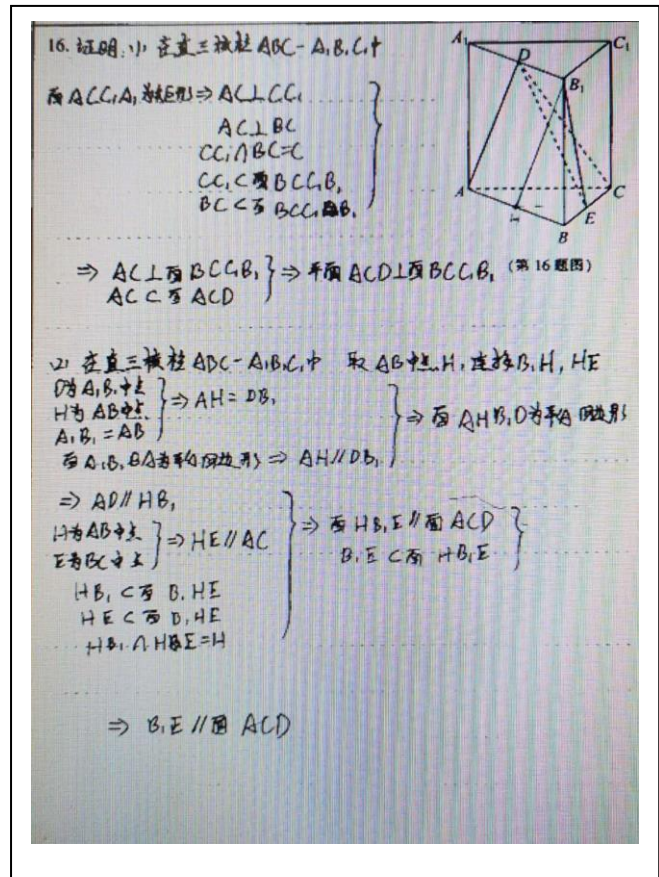 16. 证明:(1) 在直三棱柱 ABC-A₁B₁C₁中
面 ACC₁A₁为矩形⇒ AC⊥CC₁
AC⊥BC
CC₁∩BC=C
CC₁⊂面BCC₁B₁
BC⊂面BCC₁B₁
⇒ AC⊥面BCC₁B₁
AC⊂面ACD
⇒平面ACD⊥面BCC₁B₁
A₁
D
C₁
B₁
A
C
H
E
B
(第 16 题图)
(2) 在直三棱柱 ABC-A₁B₁C₁中 取AB中点H,连接B₁H, HE
D为A₁B₁中点
H为AB中点
A₁B₁=AB
⇒AH=DB₁
面A₁B₁BA为平行四边形⇒ AH//DB₁
⇒ 面AHB₁D为平行四边形
⇒ AD//HB₁
H为AB中点
E为BC中点
⇒HE//AC
HB₁⊂面B₁HE
HE⊂面B₁HE
HB₁∩HE=H
⇒面HB₁E//面ACD
B₁E⊂面HB₁E
⇒ B₁E//面ACD